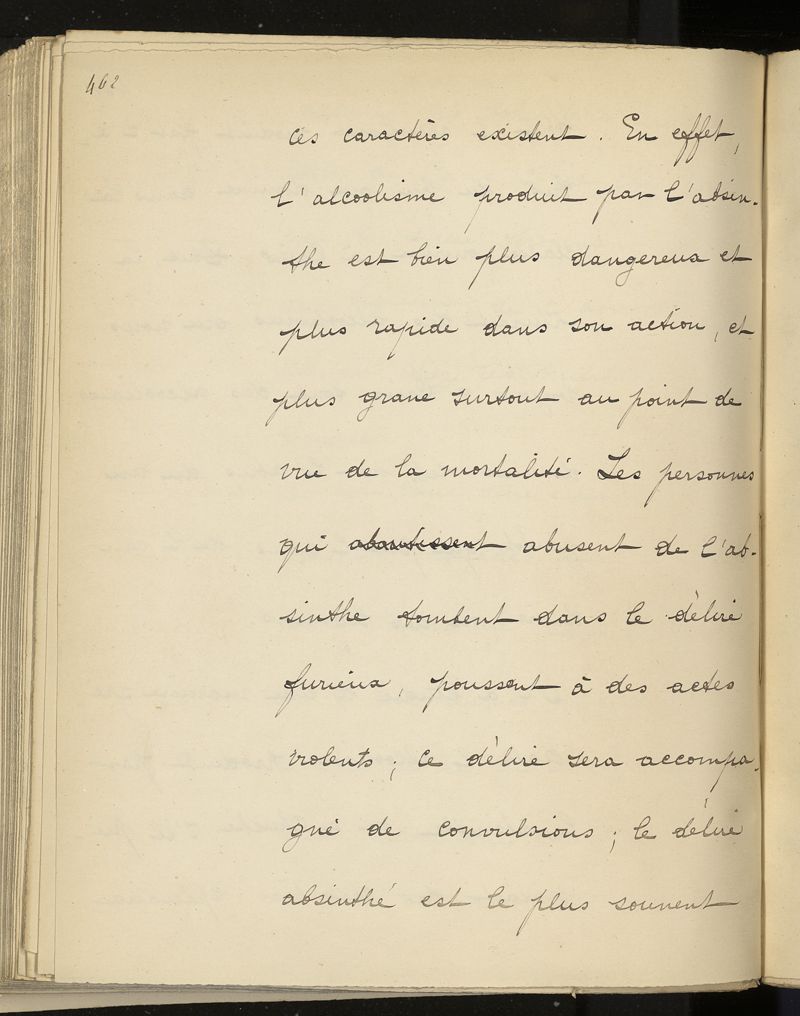 462
ces caractères existent. En effet,
l'alcoolisme produit par l'absin-
the est bien plus dangereux et
plus rapide dans son action, et
plus grave surtout au point de
vue de la mortalité. Les personnes
qui abusent de l'ab-
sinthe tombent dans le délire
furieux, poussent à des actes
violents; ce délire sera accompa-
gné de convulsions; le délire
absinthé est le plus souvent